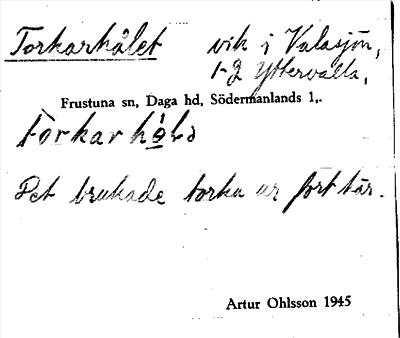 Torkarhålet vik i Valasjön,
1-2 Yttervalla,
Frustuna sn, Daga hd, Södermanlands l,.
torkarhå̀lə
Det brukade torka ur fort här.
Artur Ohlsson 1945